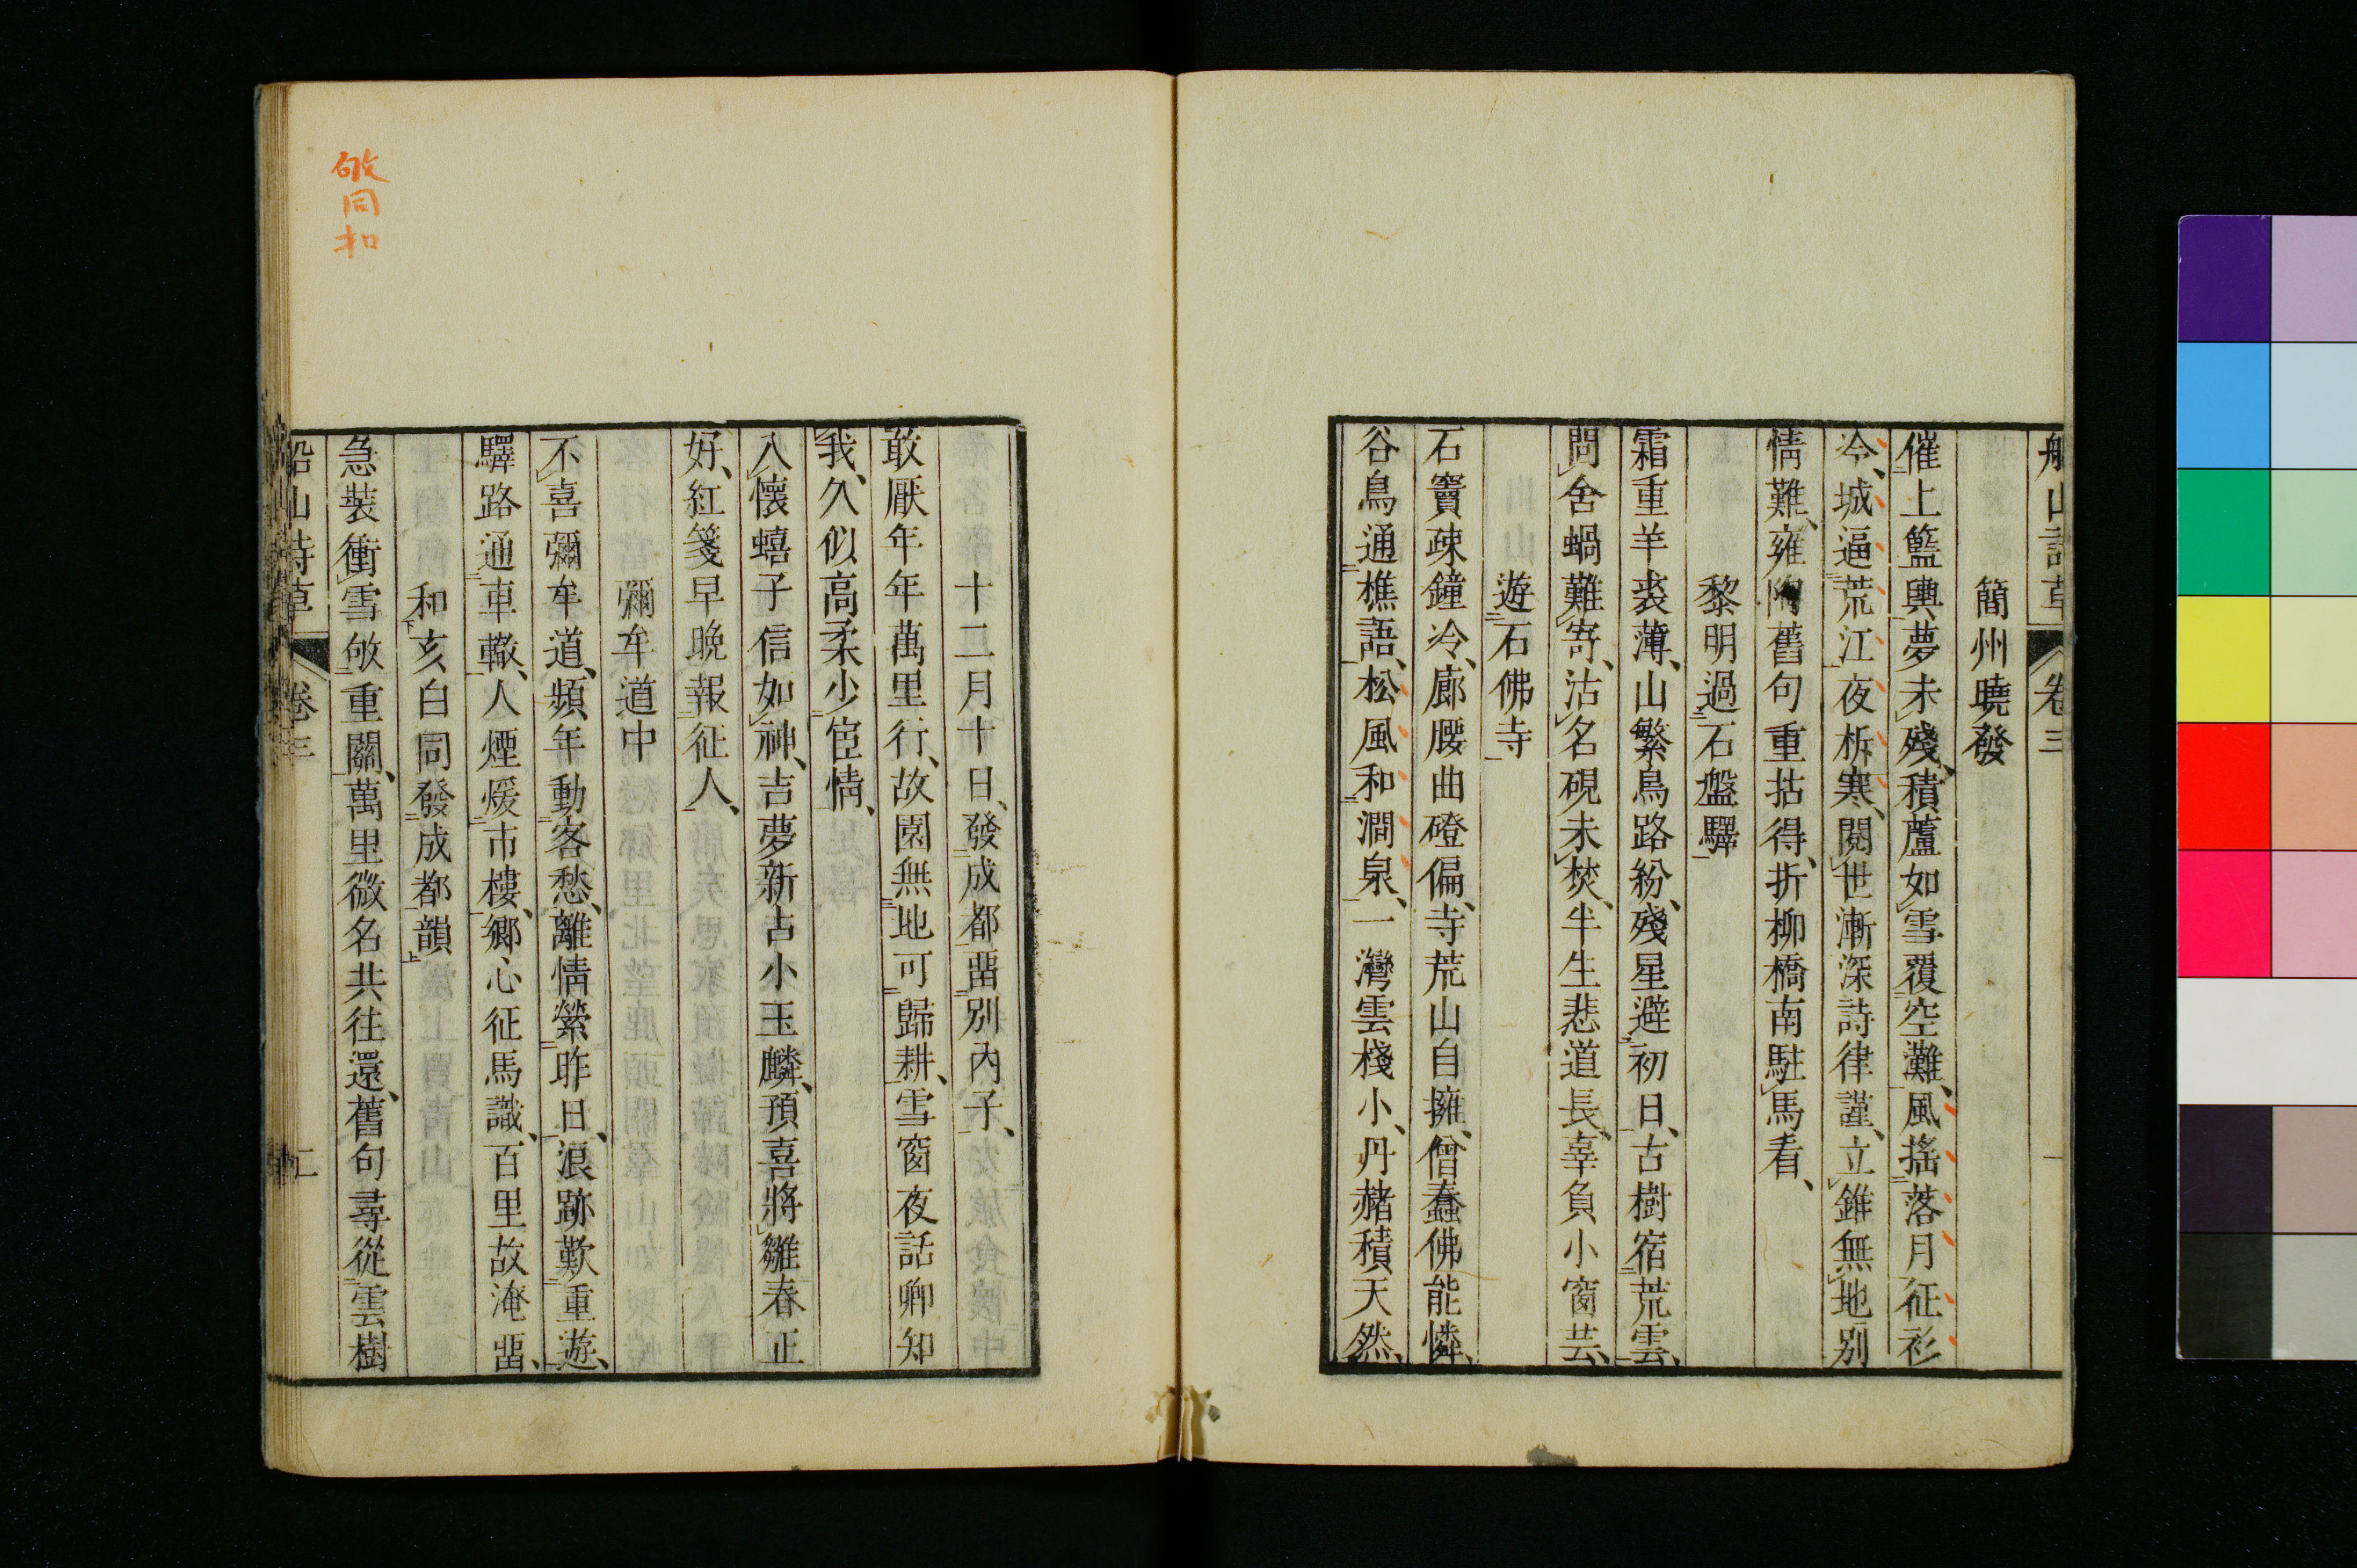 船山詩草 卷三 一
簡州曉發
催上籃輿夢未殘、積蘆如雪覆空灘、風搖落月征衫
冷、城逼荒江夜柝寒、閱世漸深詩律謹、立錐無地別
情難、雍陶舊句重拈得、折柳橋南駐馬看、
黎明過石盤驛
霜重羊裘薄、山繁鳥路紛、殘星避初日、古樹宿荒雲、
問舍蝸難寄、沽名硯未焚、半生悲道長、辜負小窗芸、
遊石佛寺
石竇疎鐘冷、廊腰曲磴偏、寺荒山自擁、僧蠢佛能憐、
谷鳥通樵語、松風和澗泉、一灣雲棧小、丹赭積天然、
十二月十日、發成都畱別內子、
敢厭年年萬里行、故園無地可歸耕、雪窗夜話卿知
我、久似高柔少宦情、
入懷蟢子信如神、吉夢新占小玉麟、預喜將雛春正
好、紅箋早晚報征人、
彌牟道中
不喜彌牟道、頻年動客愁、離情縈昨日、浪跡歎重遊、
驛路通車轍、人煙煖市樓、鄉心征馬識、百里故淹畱、
和亥白同發成都韻
急裝衝雪敂重關、萬里微名共往還、舊句尋從雲樹
船山詩草 卷三 二
敂同扣